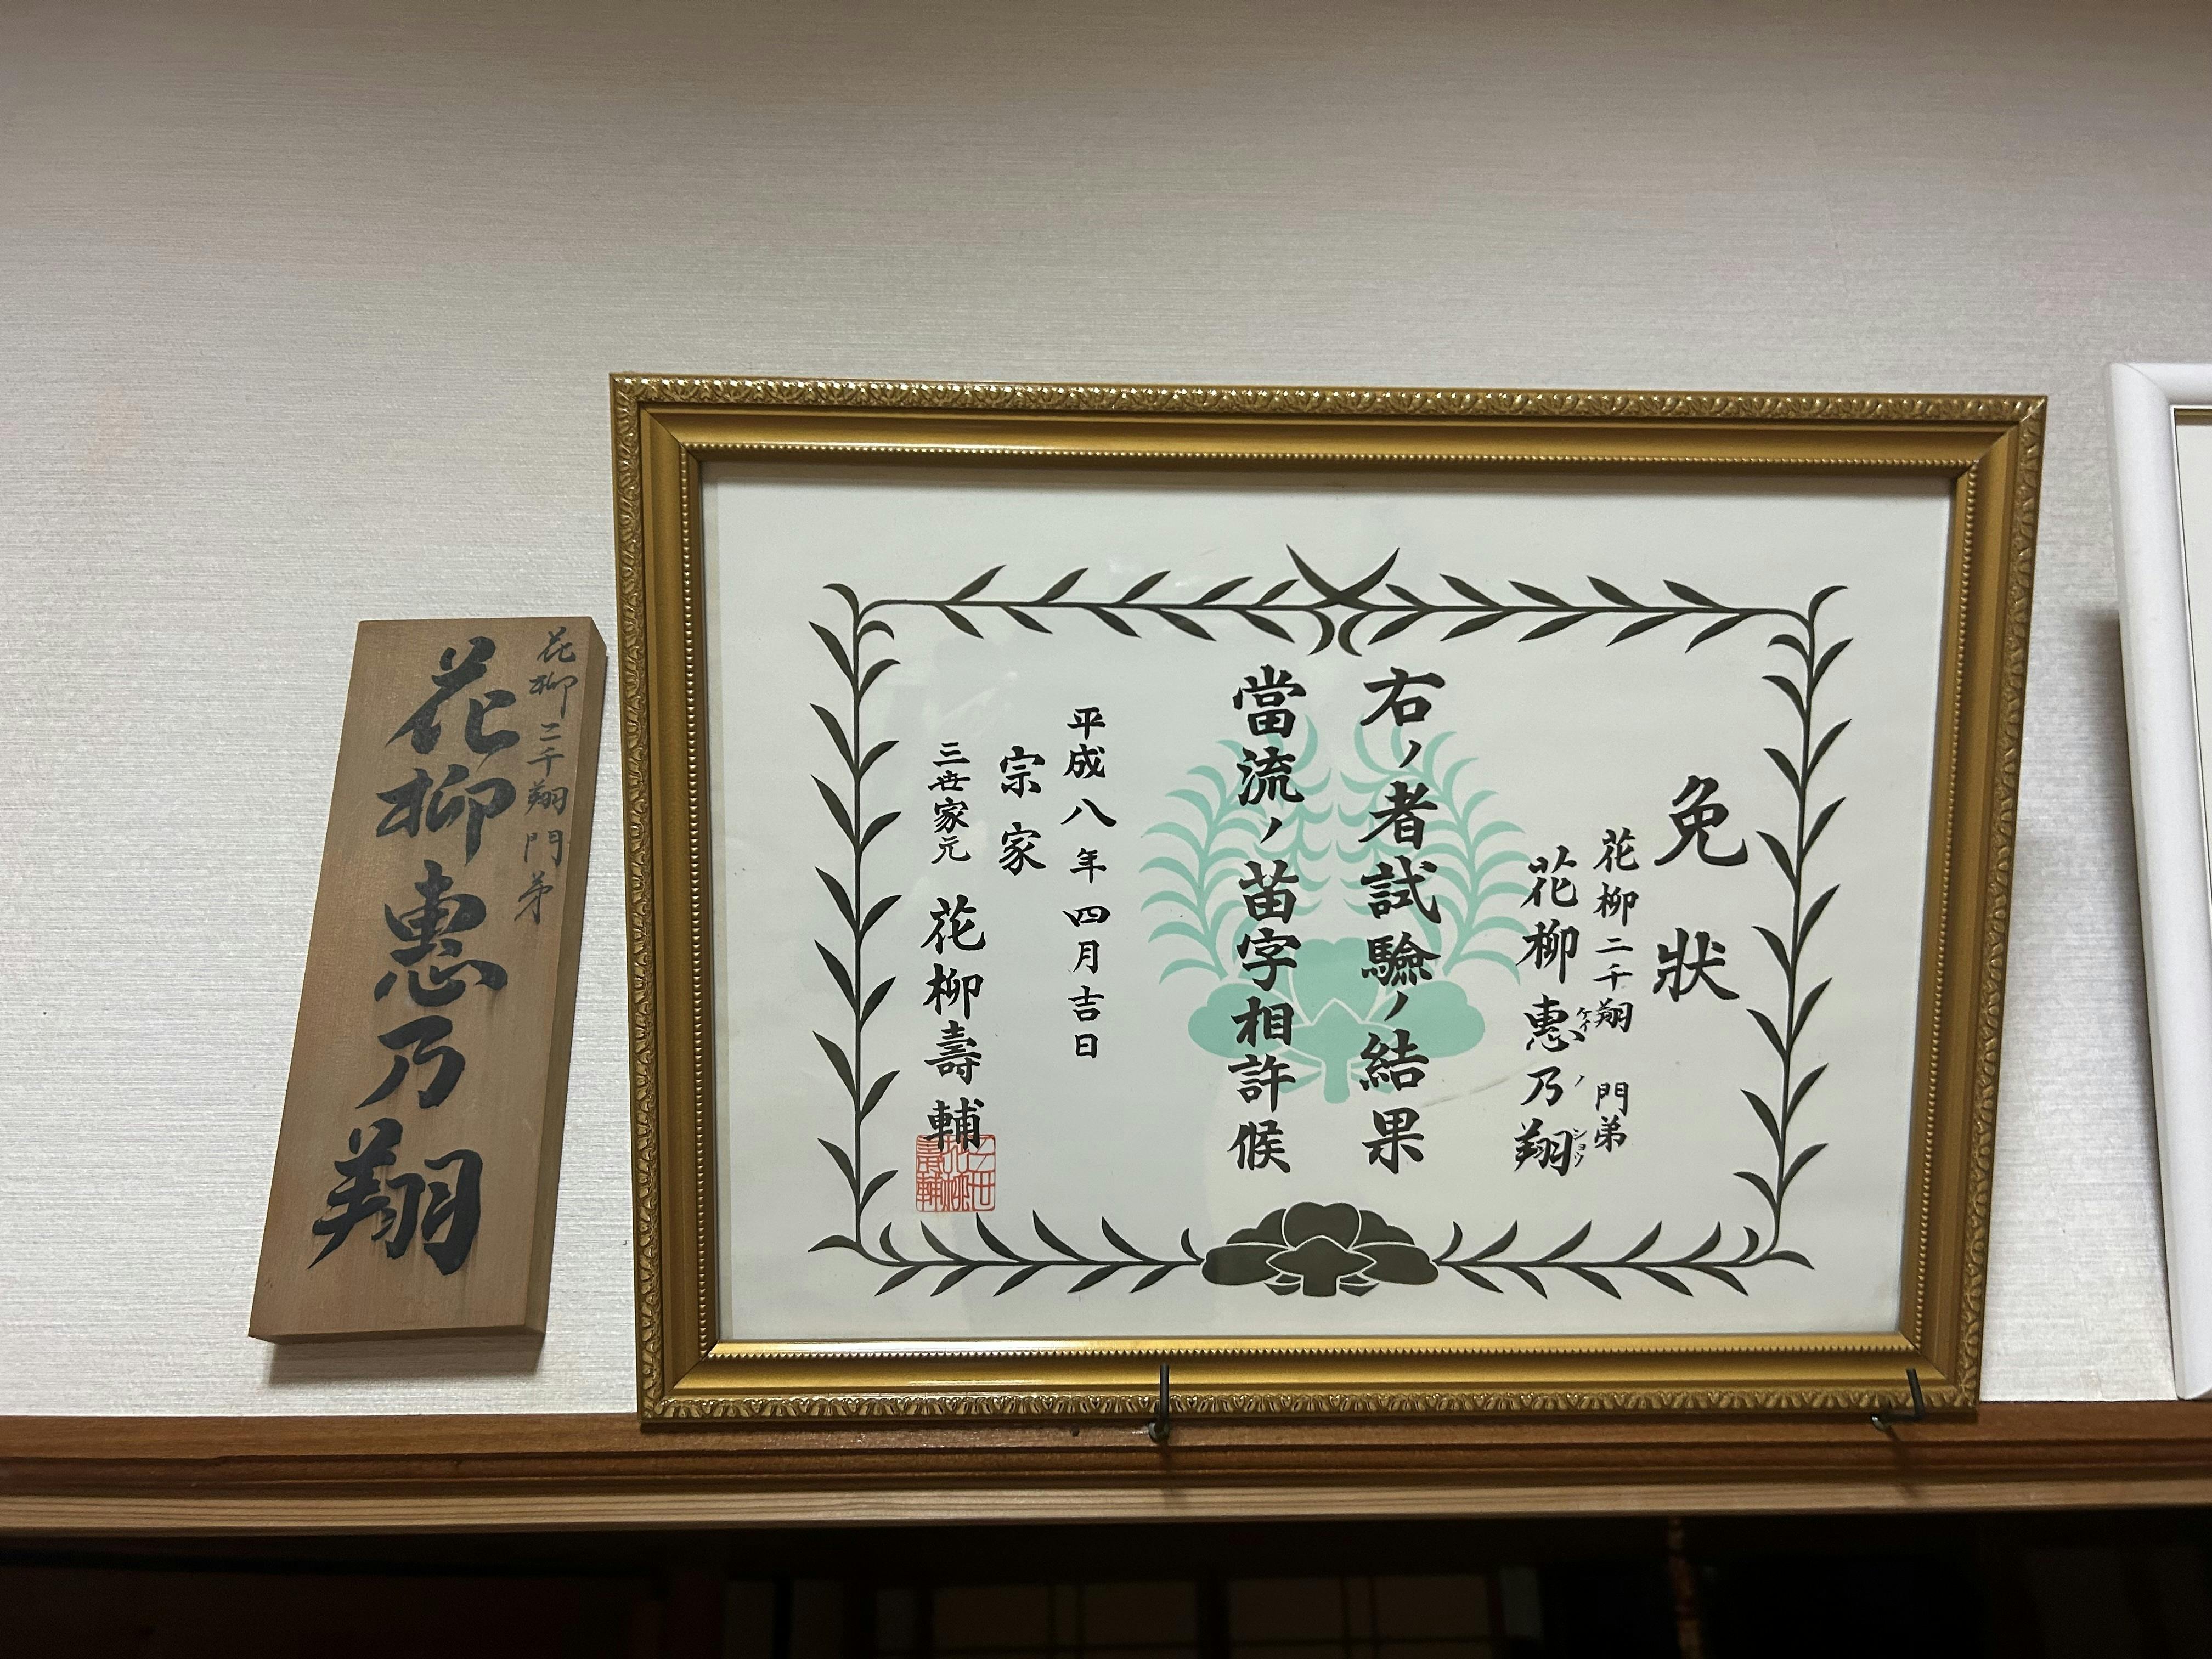 免狀
花柳二千翔 門弟
花柳惠乃翔
ケイ ノ ショウ
右ノ者試驗ノ結果
當流ノ苗字相許候
平成八年四月吉日
宗家
三世家元 花柳壽輔
三世
花柳
壽輔
花柳二千翔門弟
花柳惠乃翔